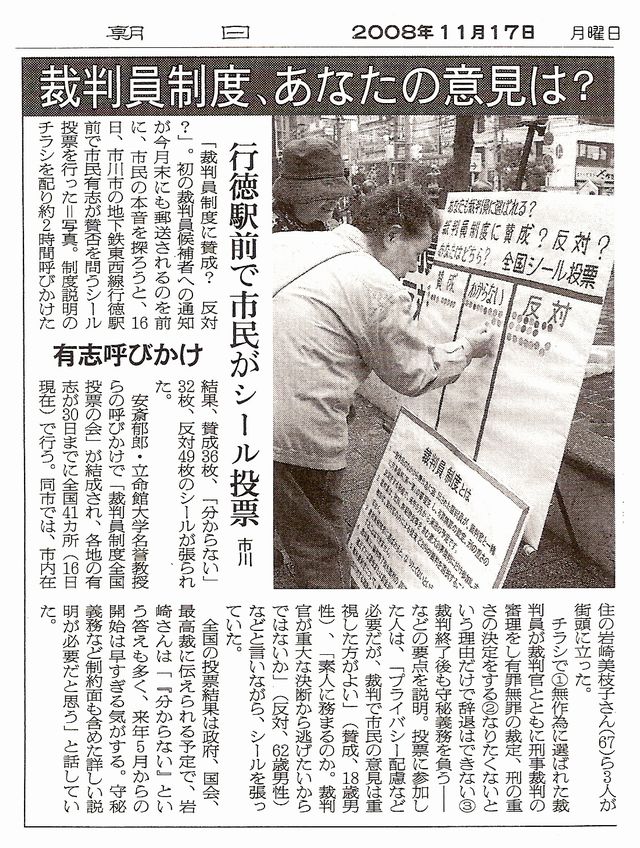 朝日
2008年11月17日
月曜日
裁判員制度、あなたの意見は？
行徳駅前で市民がシール投票
市川
有志呼びかけ
「裁判員制度に賛成？　反対
？」。初の裁判員候補者への通知
が今月末にも郵送されるのを前
に、市民の本音を探ろうと、16
日、市川市の地下鉄東西線行徳駅
前で市民有志が賛否を問うシール
投票を行った＝写真。制度説明の
チラシを配り約2時間呼びかけた
結果、賛成36枚、「分からない」
32枚、反対49枚のシールが張られ
た。
安斎郁郎・立命館大学名誉教授
らの呼びかけで「裁判員制度全国
投票の会」が結成され、各地の有
志が30日までに全国41カ所（16日
現在）で行う。同市では、市内在
住の岩崎美枝子さん(67)ら3人が
街頭に立った。
チラシで①無作為に選ばれた裁
判員が裁判官とともに刑事裁判の
審理をし有罪無罪の裁定、刑の重
さの決定をする②なりたくないと
いう理由だけで辞退はできない③
裁判終了後も守秘義務を負う――
などの要点を説明。投票に参加し
た人は、「プライバシー配慮など
必要だが、裁判で市民の意見は重
視した方がよい」（賛成、18歳男
性）、「素人に務まるのか。裁判
官が重大な決断から逃げたいから
ではないか」（反対、62歳男性）
などと言いながら、シールを張っ
ていた。
全国の投票結果は政府、国会、
最高裁に伝えられる予定で、岩
崎さんは「『分からない』とい
う答えも多く、来年5月からの
開始は早すぎる気がする。守秘
義務など制約面も含めた詳しい説
明が必要だと思う」と話してい
た。
あなたも裁判員に選ばれる？
裁判員制度に賛成？反対？
あなたはどちら？　全国シール投票
賛成
わからない
反対
裁判員制度とは